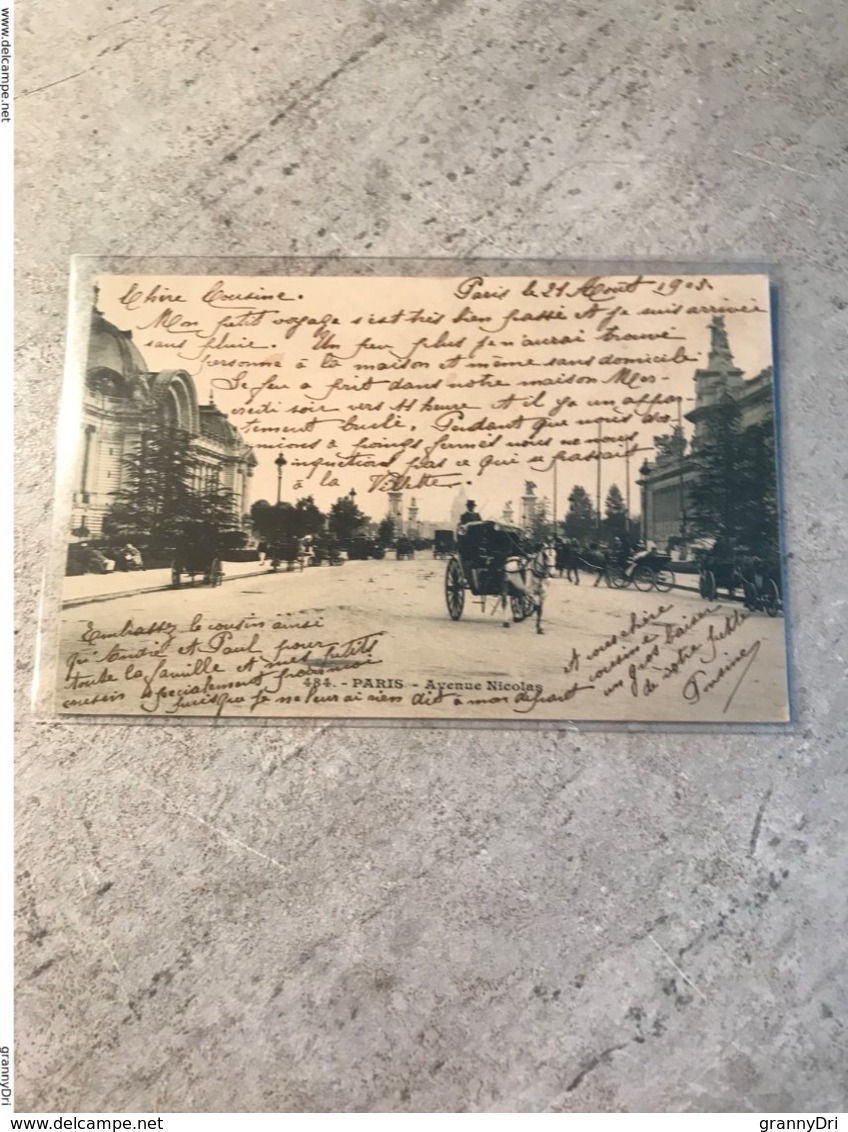 www.delcampe.net
Chère Cousine. Paris le 21 Août 190
Mon petit voyage s'est très bien passé et je suis arrivée
sans pluie. Un peu plus je n'aurai trouvé
personne à la maison et même sans domicile
Le feu a prit dans notre maison Mer-
credi soir vers 11 heure et il y a un appar-
tement brulé. Pendant que nous dor-
mions à poings fermés nous ne nous
inquiétions pas ce qui se passait
à la Villette.
Embrassez le cousin ainsi
qu'André et Paul pour
toute la famille et mes petits
cousins spécialement pour moi
puisque je ne leur ai rien dit à mon départ
484. - PARIS - Avenue Nicolas
et vous chère
cousine
un gros baiser
de votre petite
grannyDri
grannyDri www.delcampe.net